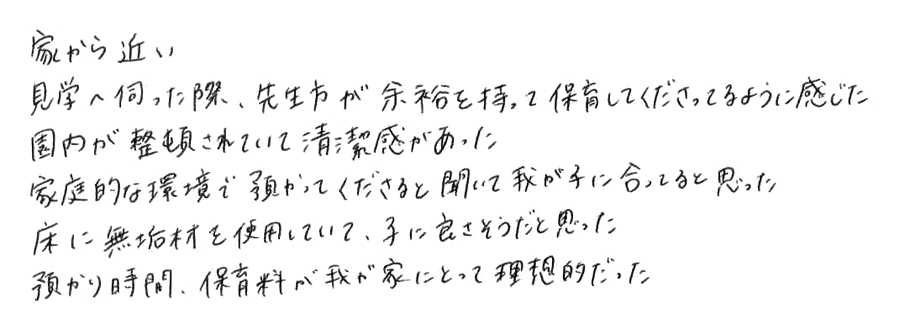 家から近い
見学へ伺った際、先生方が余裕を持って保育してくださってるように感じた
園内が整頓されていて清潔感があった
家庭的な環境で預かってくださると聞いて我が子に合ってると思った
床に無垢材を使用していて、子に良さそうだと思った
預かり時間、保育料が我が家にとって理想的だった